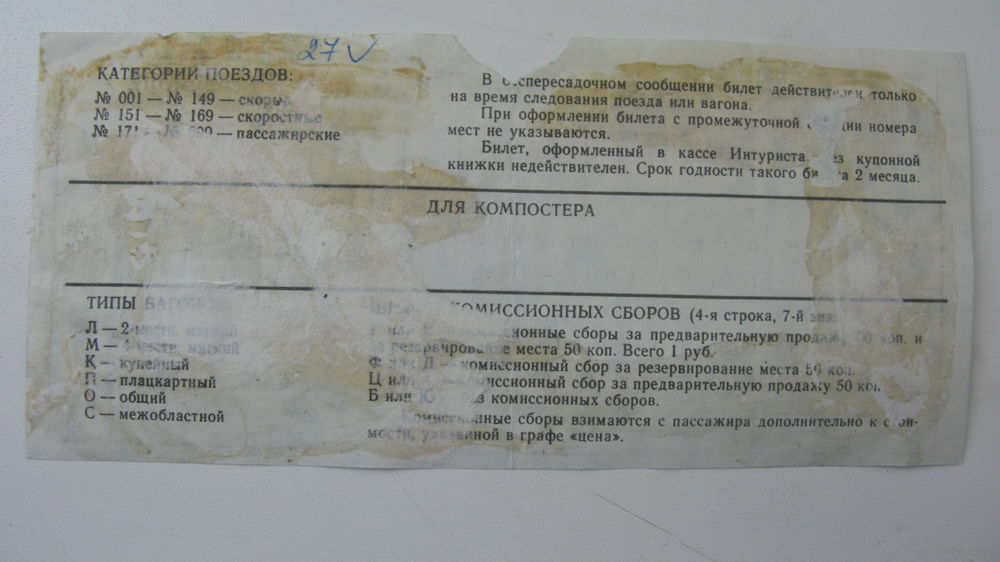 27
КАТЕГОРИИ ПОЕЗДОВ:
№ 001 — № 149 — скорые
№ 151 — № 169 — скоростные
№ 171 — № — пассажирские
В беспересадочном сообщении билет действителен только
на время следования поезда или вагона.
При оформлении билета с промежуточной номера
мест не указываются.
Билет, оформленный в кассе Интуриста без купонной
книжки недействителен. Срок годности такого билета 2 месяца.
ДЛЯ КОМПОСТЕРА
ТИПЫ ВАГОНОВ
Л — 2-местн. мягкий
М — 4-местн. мягкий
К — купейный
П — плацкартный
О — общий
С — межобластной
КОМИССИОННЫХ СБОРОВ (4-я строка, 7-й знак
или комиссионные сборы за предварительную продажу 50 коп. и
за резервирование места 50 коп. Всего 1 руб.
Ф или Д — комиссионный сбор за резервирование места 50 коп.
Ц или комиссионный сбор за предварительную продажу 50 коп.
Б или Ю без комиссионных сборов.
Комиссионные сборы взимаются с пассажира дополнительно к стои-
мости, указанной в графе «цена».